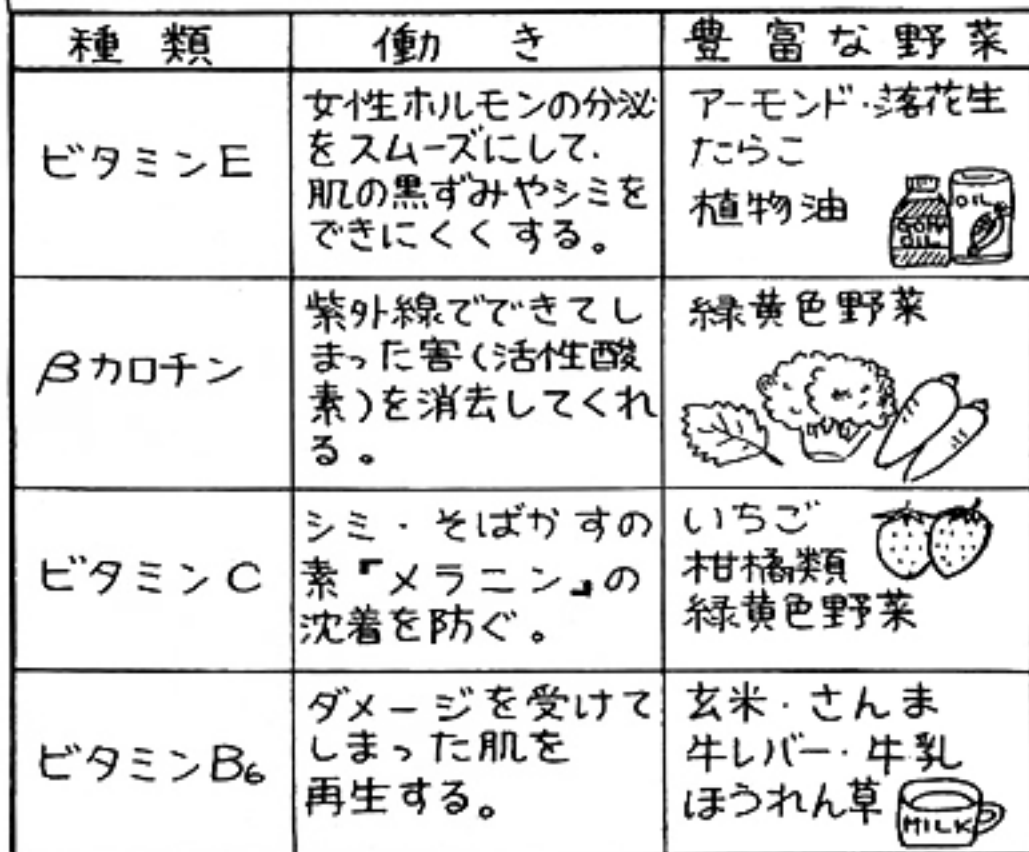 種類 働き 豊富な野菜
ビタミンE
女性ホルモンの分泌
をスムーズにして、
肌の黒ずみやシミを
できにくくする。
アーモンド・落花生
たらこ
植物油
OIL
GOMA
OIL
βカロチン
紫外線でできてし
まった害(活性酸
素)を消去してくれ
る。
緑黄色野菜
ビタミンC
シミ・そばかすの
素『メラニン』の
沈着を防ぐ。
いちご
柑橘類
緑黄色野菜
ビタミンB₆
ダメージを受けて
しまった肌を
再生する。
玄米・さんま
牛レバー・牛乳
ほうれん草
MILK